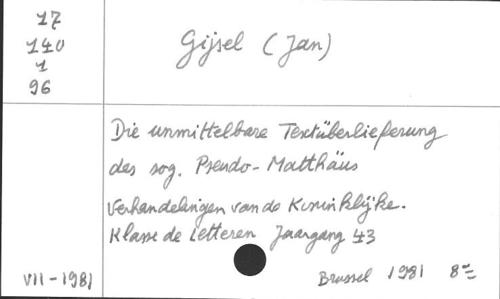 17
140
1
96
Gijsel (Jan)
Die unmittelbare Textüberlieferung
des sog. Pseudo-Matthäus
Verhandelingen van de Koninklijke.
Klasse de Letteren Jaargang 43
VII-1981
Brussel 1981 8º